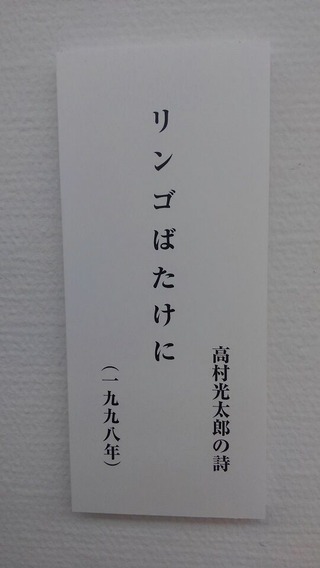 高村光太郎の詩
リンゴばたけに
（一九九八年）